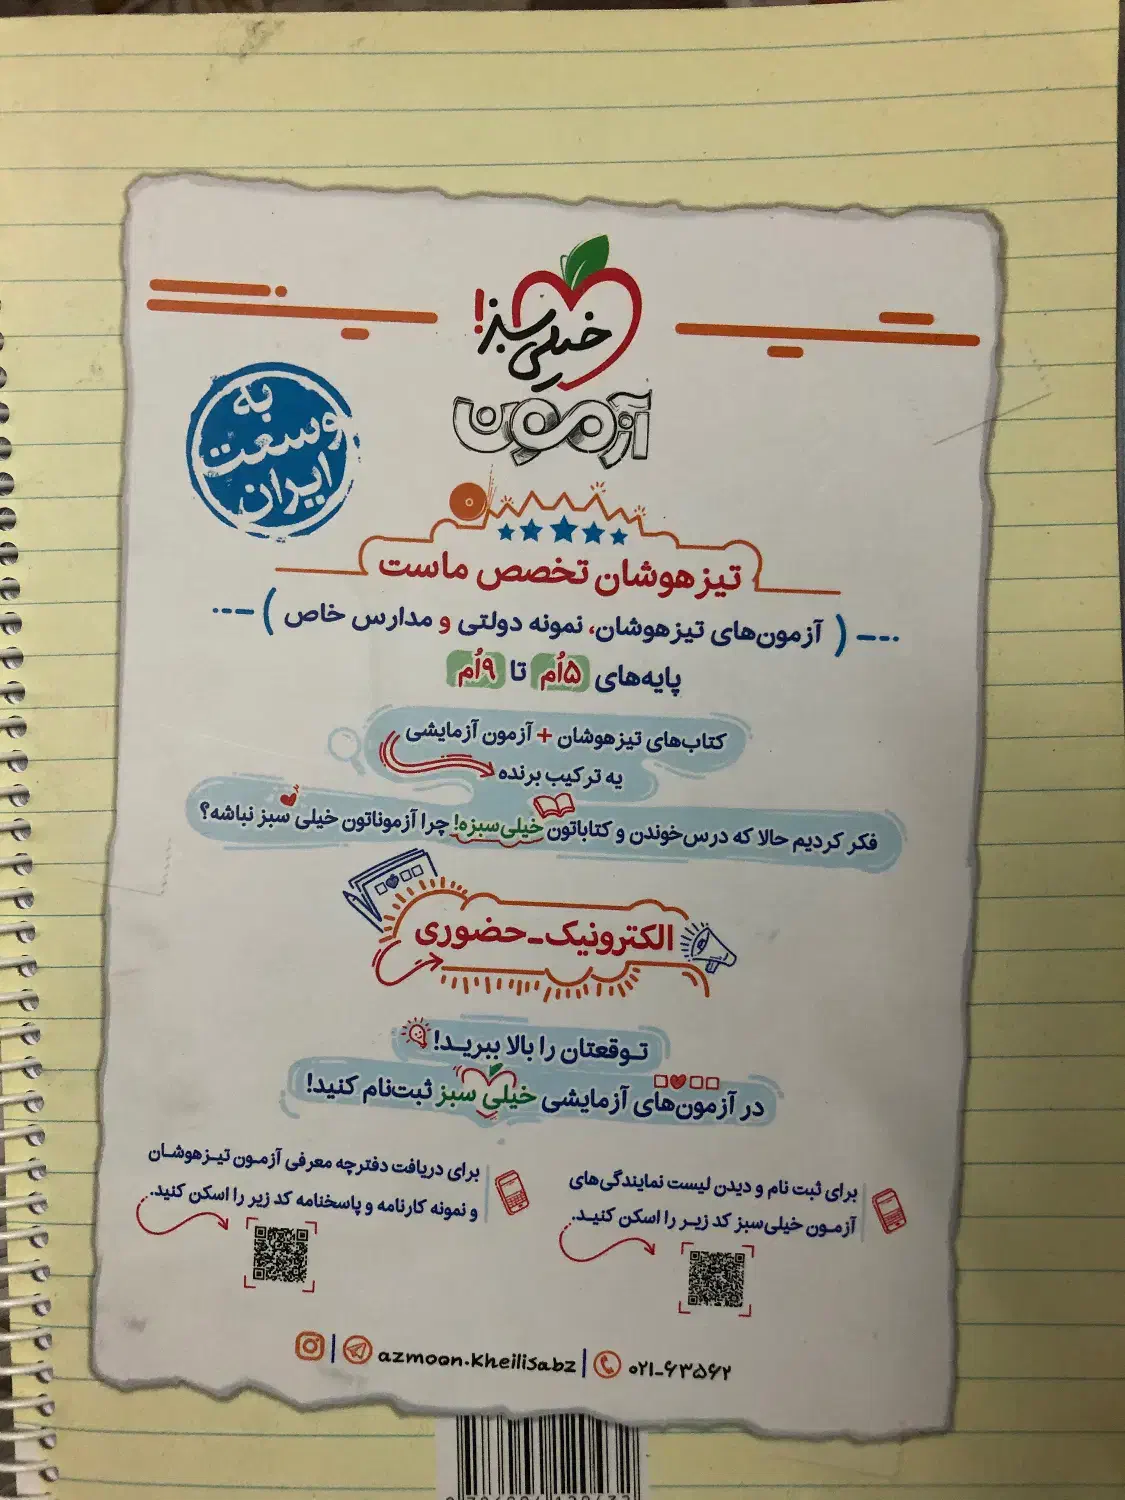 خیلی سبز!
آزمون
به
وسعت
ایران
تیزهوشان تخصص ماست
(آزمون‌های تیزهوشان، نمونه دولتی و مدارس خاص)
پایه‌های ۵اُم تا ۹اُم
کتاب‌های تیزهوشان + آزمون آزمایشی
یه ترکیب برنده
فکر کردیم حالا که درس‌خوندن و کتاباتون خیلی‌سبزه! چرا آزموناتون خیلی سبز نباشه؟
الکترونیک-حضوری
توقعتان را بالا ببرید!
در آزمون‌های آزمایشی خیلی سبز ثبت‌نام کنید!
برای ثبت نام و دیدن لیست نمایندگی‌های
آزمون خیلی‌سبز کد زیر را اسکن کنید.
برای دریافت دفترچه معرفی آزمون تیزهوشان
و نمونه کارنامه و پاسخنامه کد زیر را اسکن کنید.
azmoon.kheilisabz | ۰۲۱-۶۳۵۶۲